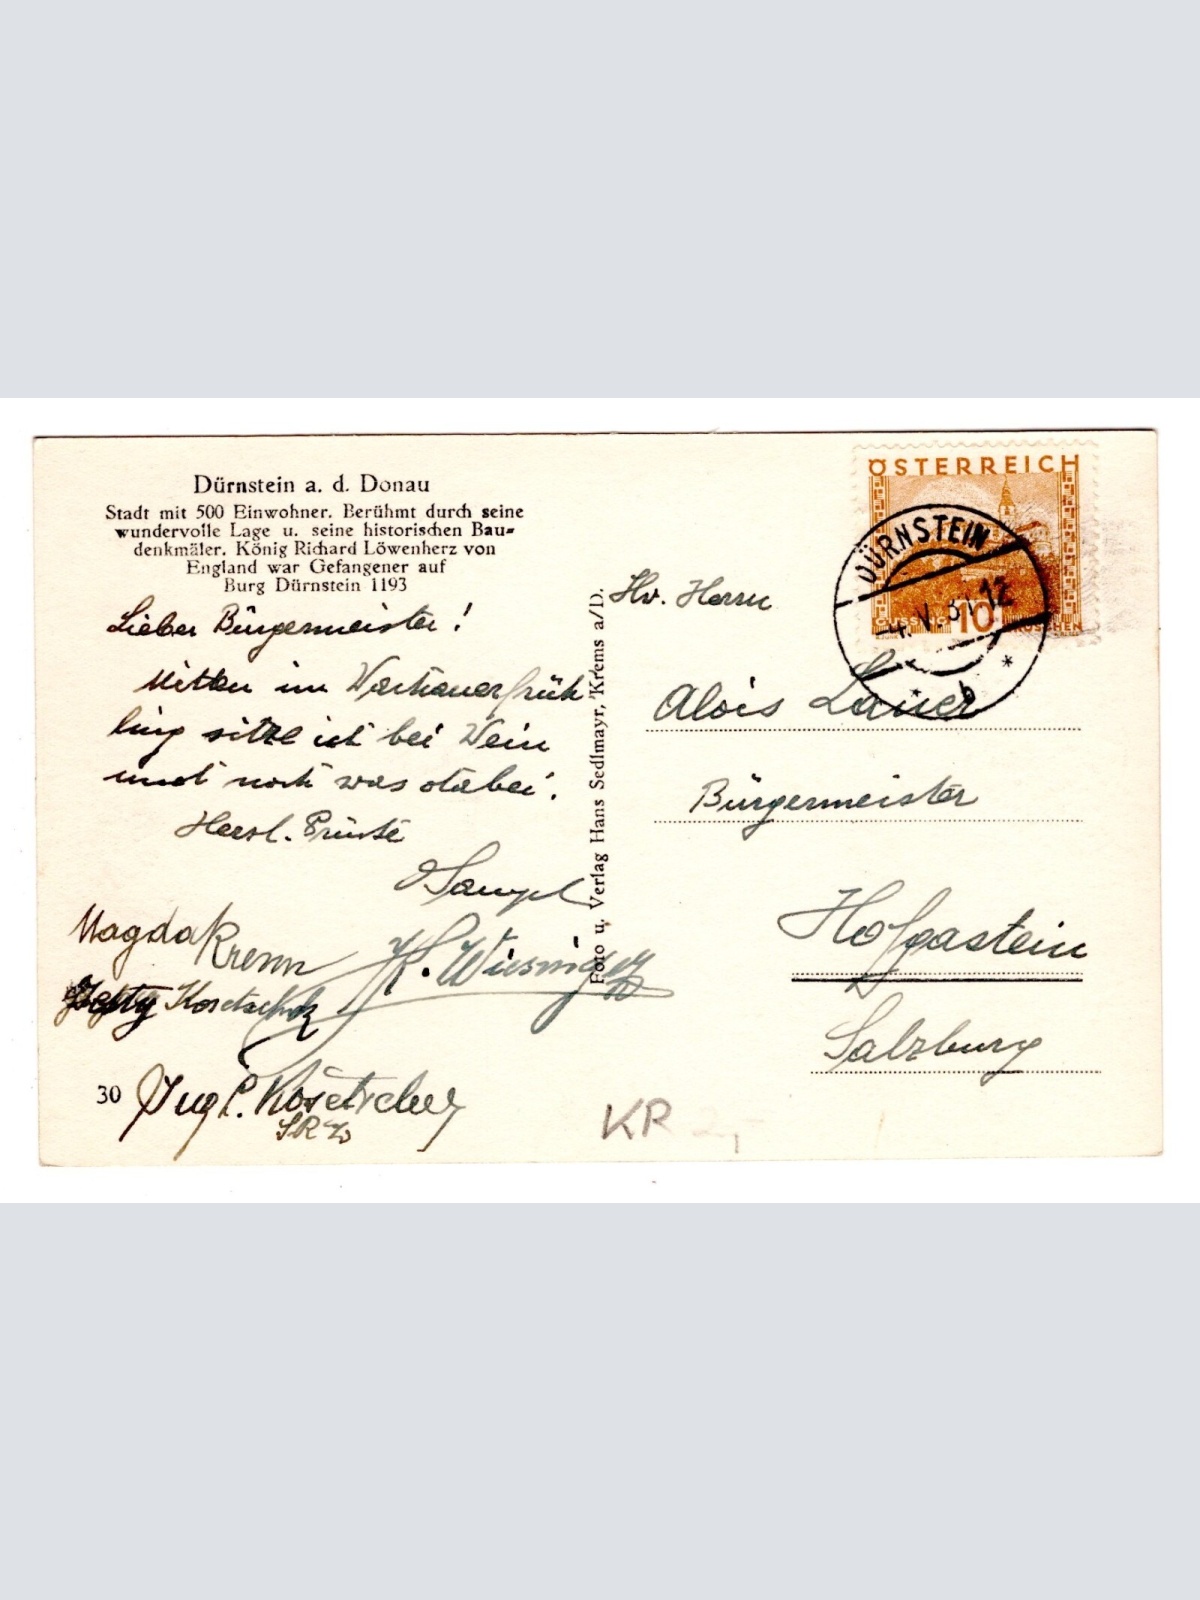 Dürnstein a. d. Donau
Stadt mit 500 Einwohner. Berühmt durch seine
wundervolle Lage u. seine historischen Bau=
denkmäler. König Richard Löwenherz von
England war Gefangener auf
Burg Dürnstein 1193
Lieber Bürgermeister!
Mitten im Wachauerfrüh
ling sitze ich bei Wein
und noch was dabei.
Herzl. Grüße
Magda Krenn
K. Wiesinger
30
Foto u. Verlag Hans Sedlmayr, Krems a/D.
ÖSTERREICH
10
GROSCHEN
DÜRNSTEIN
4. V. 31 12
* b *
Hr. Herrn
Alois Lauer
Bürgermeister
Hofgastein
Salzburg
KR 2,-